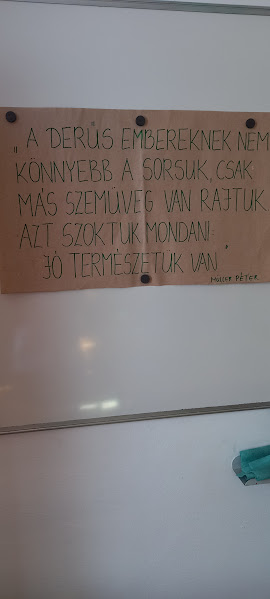 „A DERŰS EMBEREKNEK NEM
KÖNNYEBB A SORSUK, CSAK
MÁS SZEMÜVEG VAN RAJTUK.
AZT SZOKTUK MONDANI:
JÓ TERMÉSZETÜK VAN.”
MÜLLER PÉTER